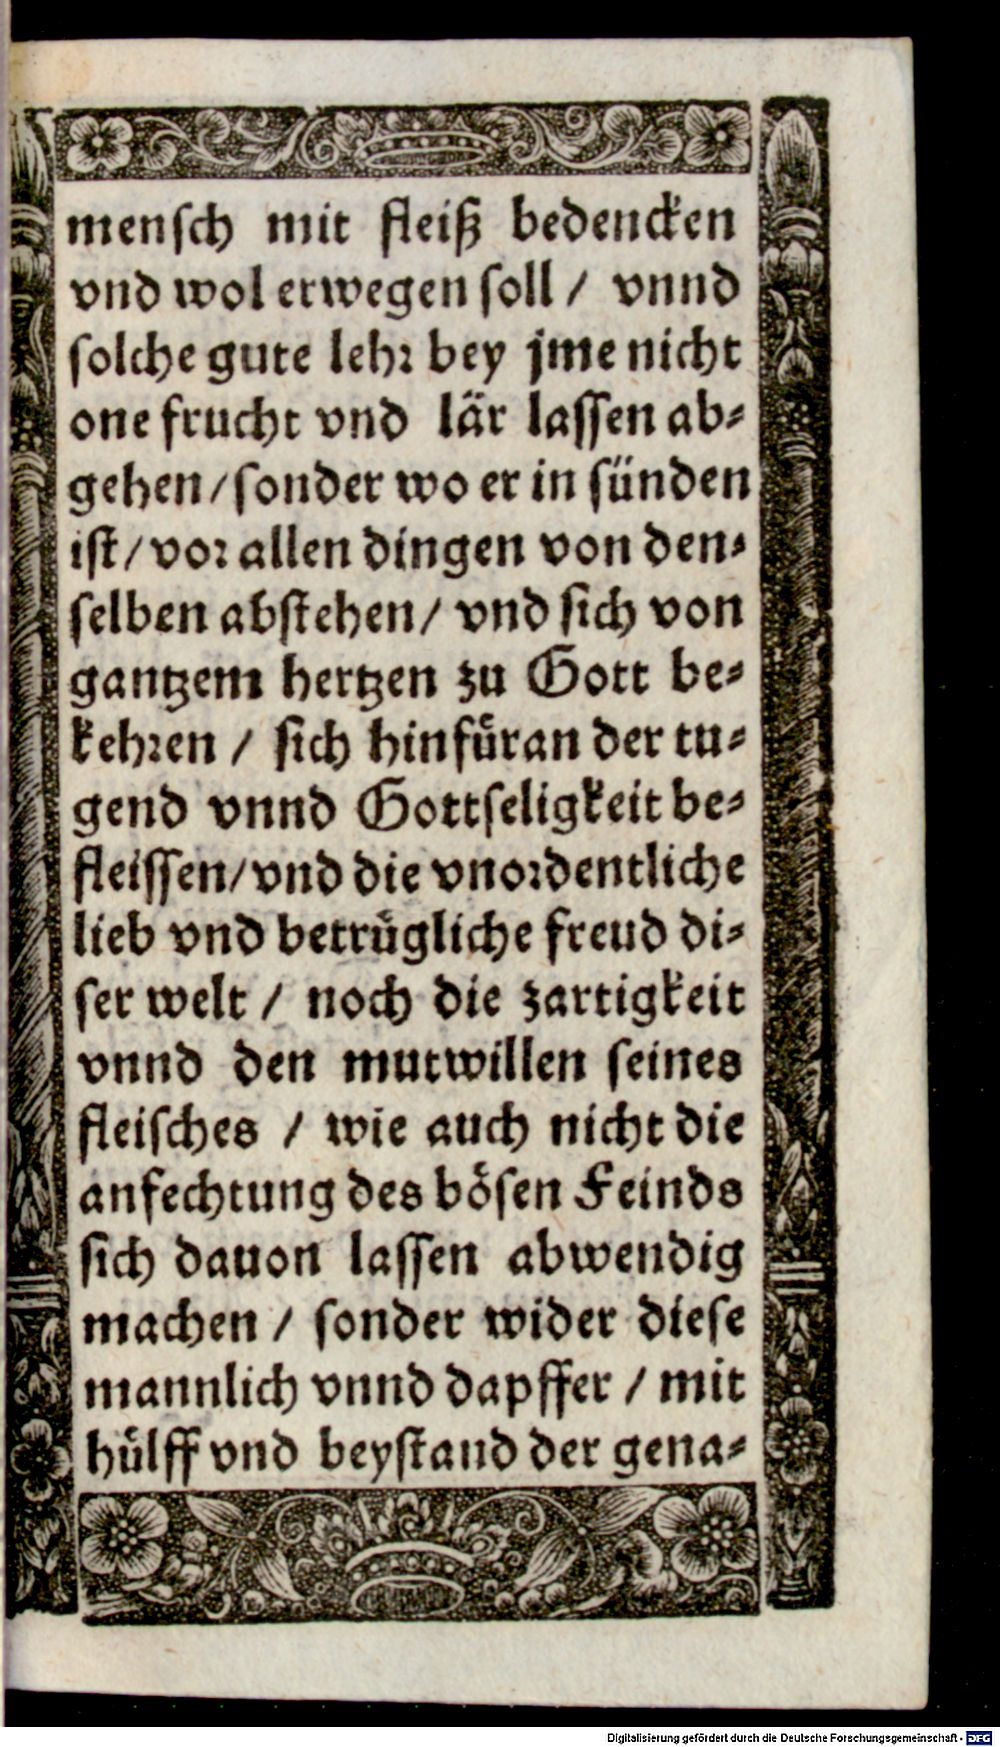 mensch mit fleiß bedencken
vnd wol erwegen soll / vnnd
solche gute lehr bey jme nicht
one frucht vnd lär lassen ab-
gehen / sonder wo er in sünden
ist / vor allen dingen von den-
selben abstehen / vnd sich von
gantzem hertzen zu Gott be-
kehren / sich hinfüran der tu-
gend vnnd Gottseligkeit be-
fleissen / vnd die vnordentliche
lieb vnd betrügliche freud di-
ser welt / noch die zartigkeit
vnnd den mutwillen seines
fleisches / wie auch nicht die
anfechtung des bösen Feinds
sich dauon lassen abwendig
machen / sonder wider diese
mannlich vnnd dapffer / mit
hülff vnd beystand der gena-
Digitalisierung gefördert durch die Deutsche Forschungsgemeinschaft - DFG